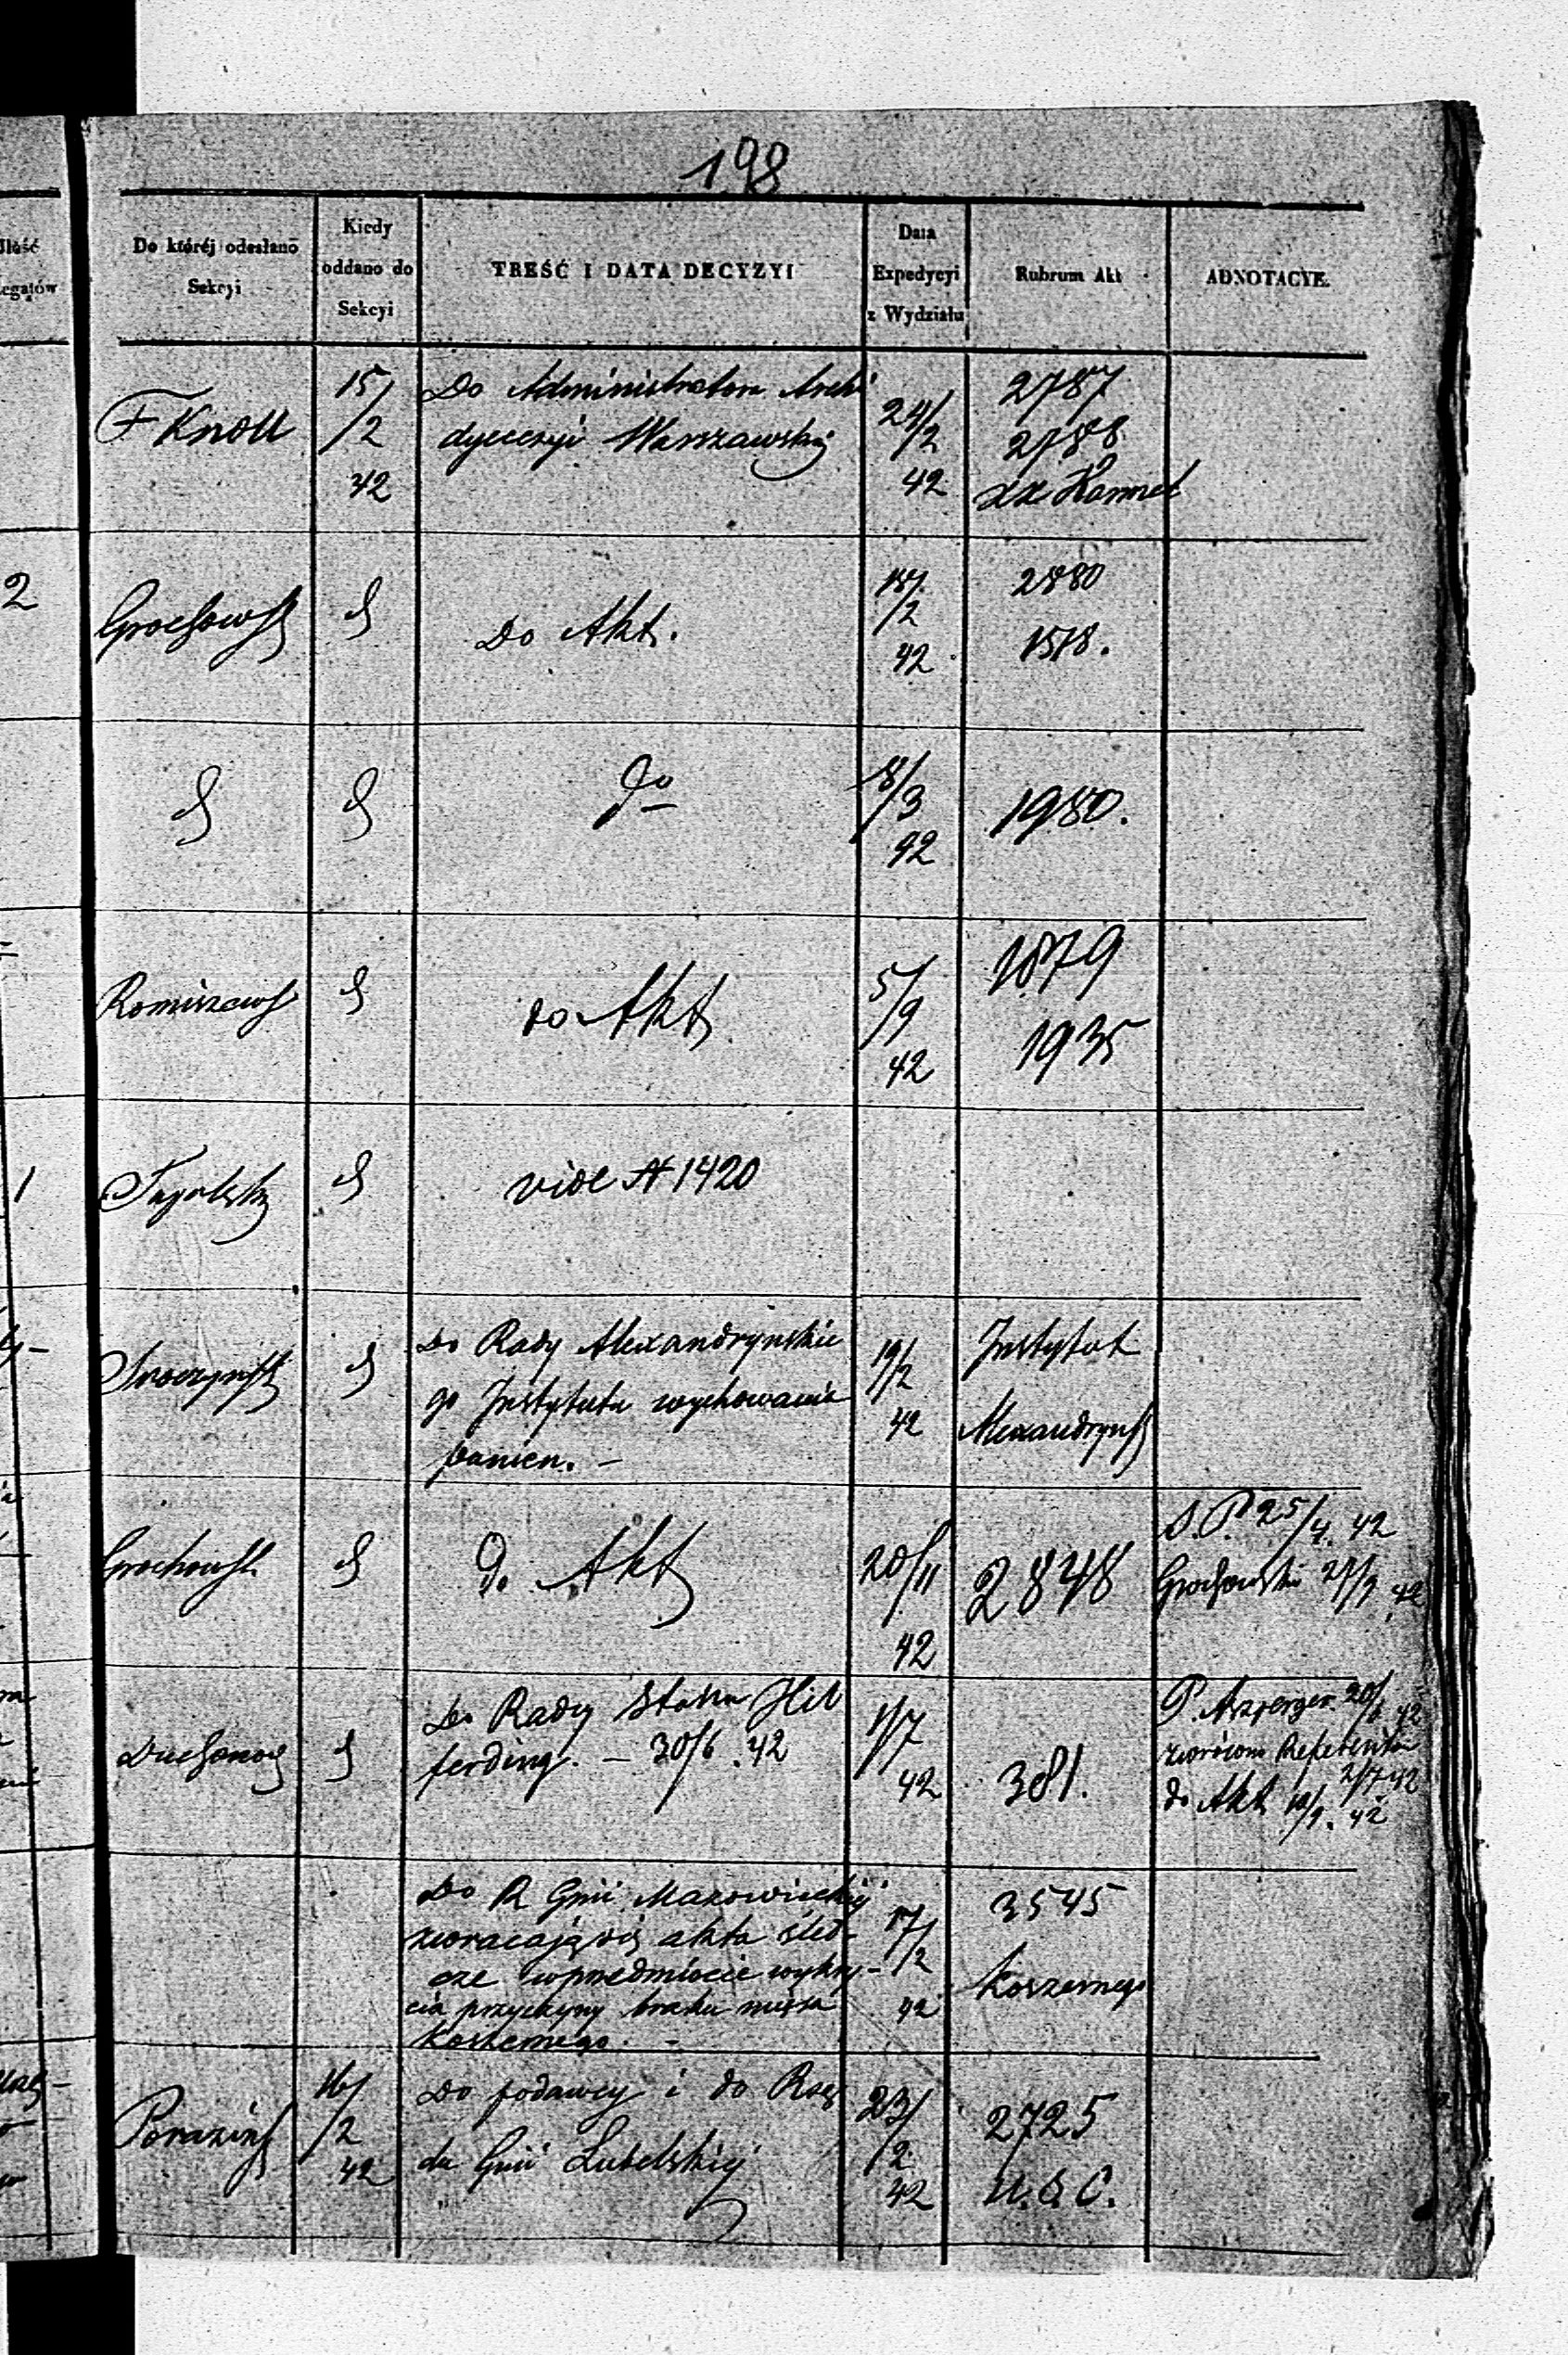 198
Ilość
Do któréj odesłano
Sekcyi
Kiedy
oddano do
Sekcyi
TREŚĆ I DATA DECYZYI
Data
Expedycyi
z Wydziału
Rubrum Akt
ADNOTACYE.
F Knoll
15/
/2
42
Do Administratora Archi
dyecezyi Warszawskiej
24/
/2
42
2787
2788
2
Grochowsk
Do Akt.
/2
42
2880
1518.
do
18/
/3
42
1980.
Romiszews
do Akt
5/
/9
42
1879
1935
1
vide N 1420
Do Rady Alexandryńskie
go Instytutu wychowania
panien. –
19/
/2
42
Instytut
Alexandryńs
Grochowsk
do Akt
20/11
42
2848
S. P. 25/4. 42
Grochowski
42
Do Rady Stanu Hil
ferding. – 30/6 . 42
1/7
42
381.
P.
42
zwrócono Referentu
2/7 42
do Akt
42
Do R Gnii Mazowieckiéj
zwracają się akta śled-
cze w przedmiocie wykry-
cia przyczyny braku mięsa
Koszernego. –
17/
/2
42
3545
Koszernego
16/
/2
42
Do podawcy i do Rzą
du Gnii Lubelskiéj
23/
/2
42
2725